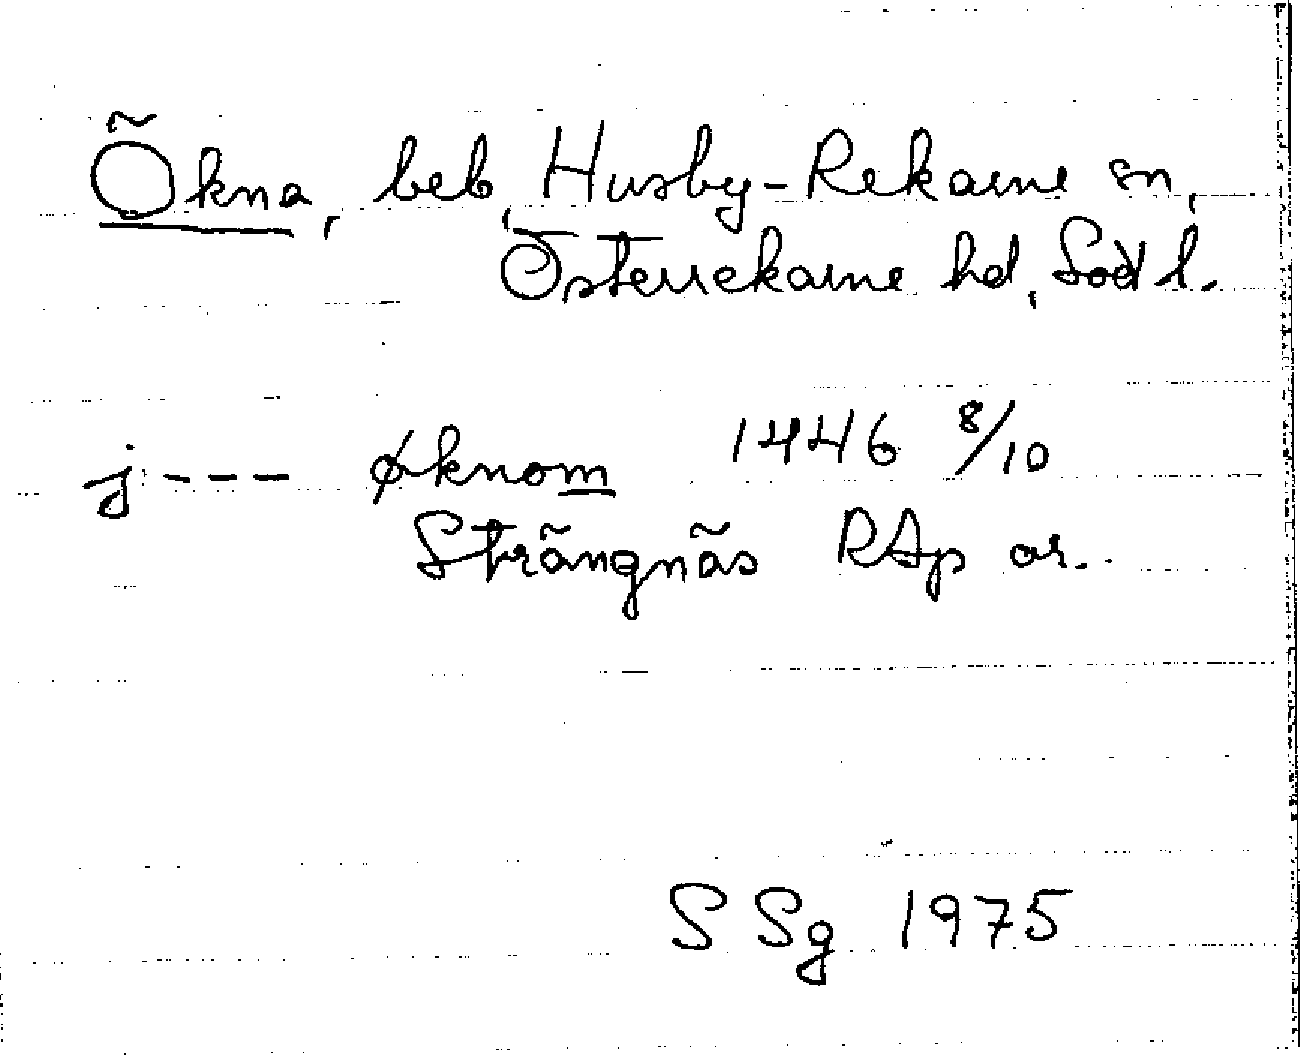 Ökna, beb, Husby-Rekarne sn,
Österrekarne hd, Söd l.
j --- øknom 1446 8/10
Strängnäs RAp or.
S Sg 1975